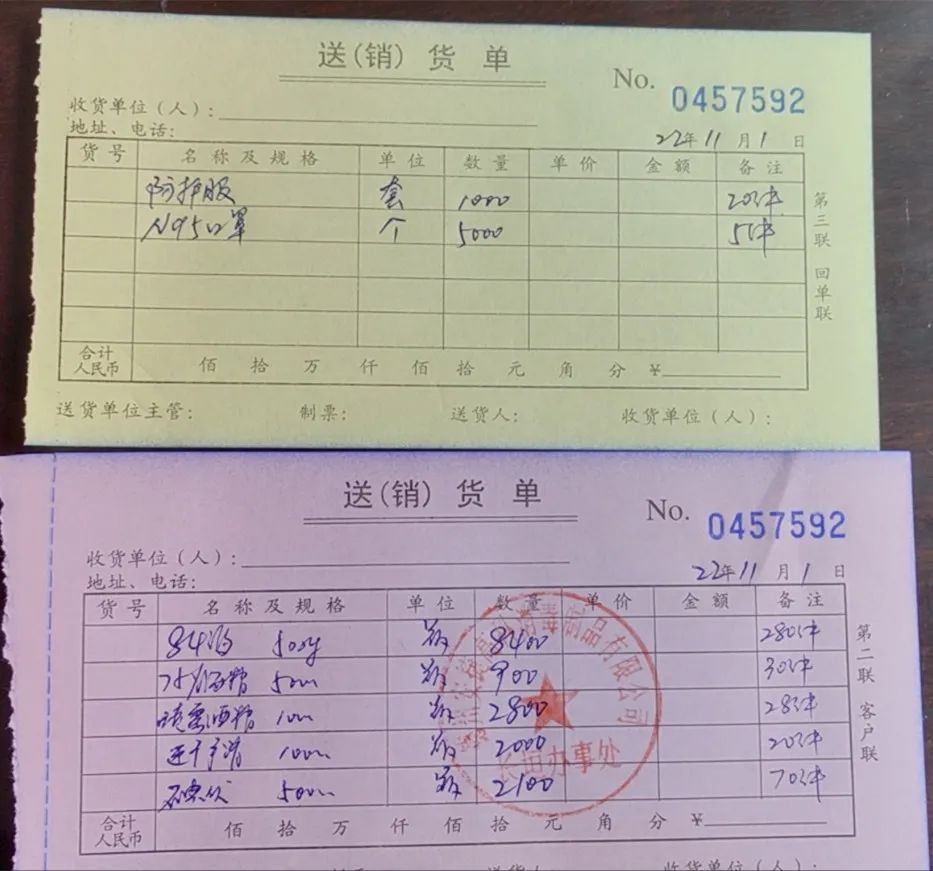 送(销) 货 单
No. 0457592
收货单位(人):
地址、电话:
22年 11 月 1 日
货号 名称及规格 单位 数量 单价 金额 备注
防护服 套 1000 20件
N95口罩 个 5000 5件
合计人民币 佰 拾 万 仟 佰 拾 元 角 分 ¥
送货单位主管: 制票: 送货人: 收货单位(人):
第三联 回单联
送(销) 货 单
No. 0457592
收货单位(人):
地址、电话:
22年 11 月 1 日
货号 名称及规格 单位 数量 单价 金额 备注
84消 500g 瓶 8400 280件
酒精 500ml 瓶 900 30件
喷雾酒精 100ml 瓶 2800 28件
瓶 2000 20件
碘伏 500ml 瓶 2100 70件
合计人民币 佰 拾 万 仟 佰 拾 元 角 分 ¥
第二联 客户联
消毒制品有限公司
办事处